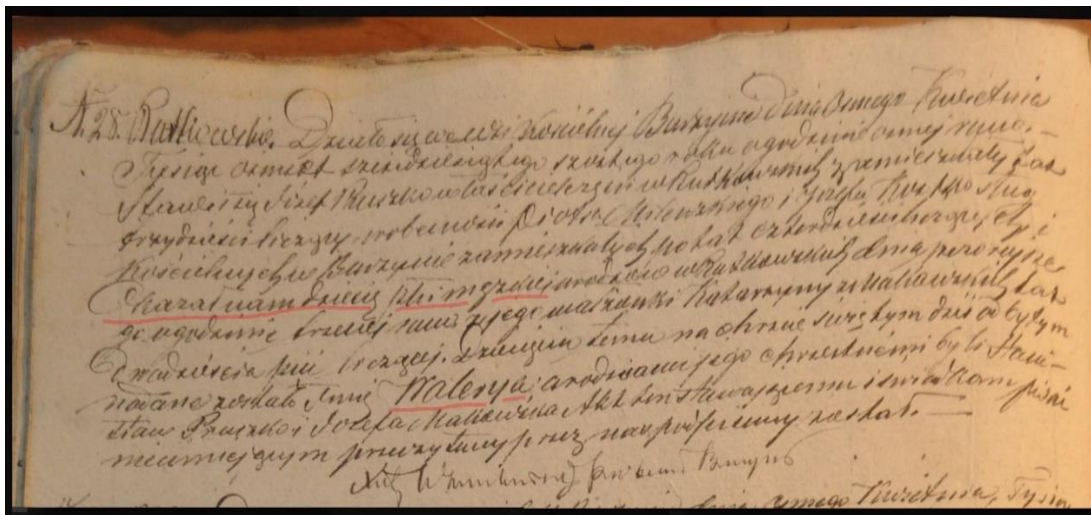 N. 28. Rutkowskie. Działo się we wsi Kościelnej Burzynie dnia ósmego Kwietnia
Tysiąc ośmset sześćdziesiątego szóstego roku o godzinie ósmej rano. –
Stawił się Józef Pruszko właściciel w Rutkowskich zamieszkały lat
trzydzieści liczący, w obecności Piotra i Józefa sług
Kościelnych w Burzynie zamieszkałych po lat czterdzieści liczących i
Okazał nam dziecię płci męzkiej urodzone w Rutkowskich dnia
go o godzinie trzeciej rano z jego małżonki Katarzyny z Makowskich lat
dwadzieścia pięć liczącej. Dziecięciu temu na chrzcie świętym dziś odbytym
nadane zostało Imie Walerya, a rodzicami jego chrzestnemi byli Stani-
sław Pruszko i Józefa Makowska Akt ten stawającemu i świadkom pisać
nieumiejącym przeczytany przez nas podpisany został. –
Kwietnia, Tysiąc